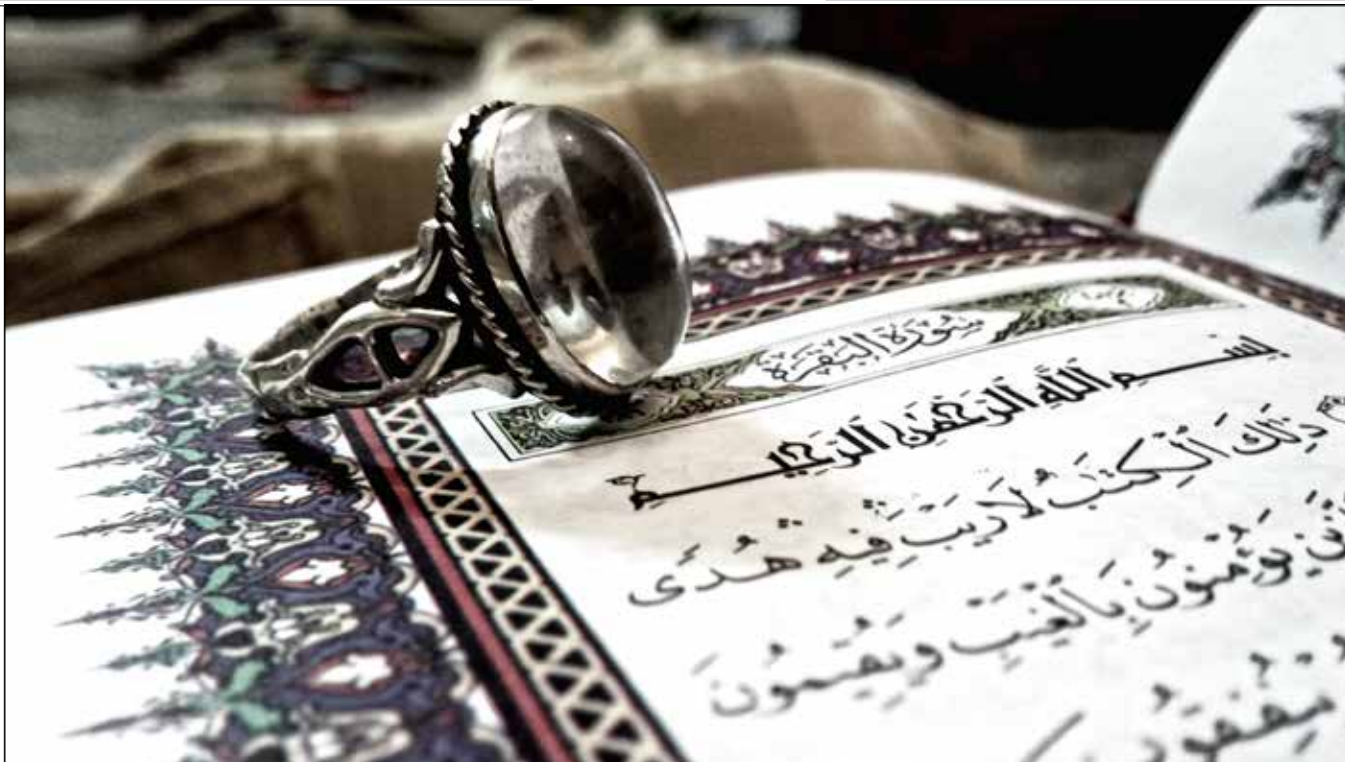 سُورَةُ الْبَقَرَةِ
بِسْمِ اللَّهِ الرَّحْمَٰنِ الرَّحِيمِ
ذَٰلِكَ ٱلْكِتَٰبُ لَا رَيْبَ ۛ فِيهِ ۛ هُدًى
يُؤْمِنُونَ بِٱلْغَيْبِ وَيُقِيمُونَ
يُنفِقُونَ